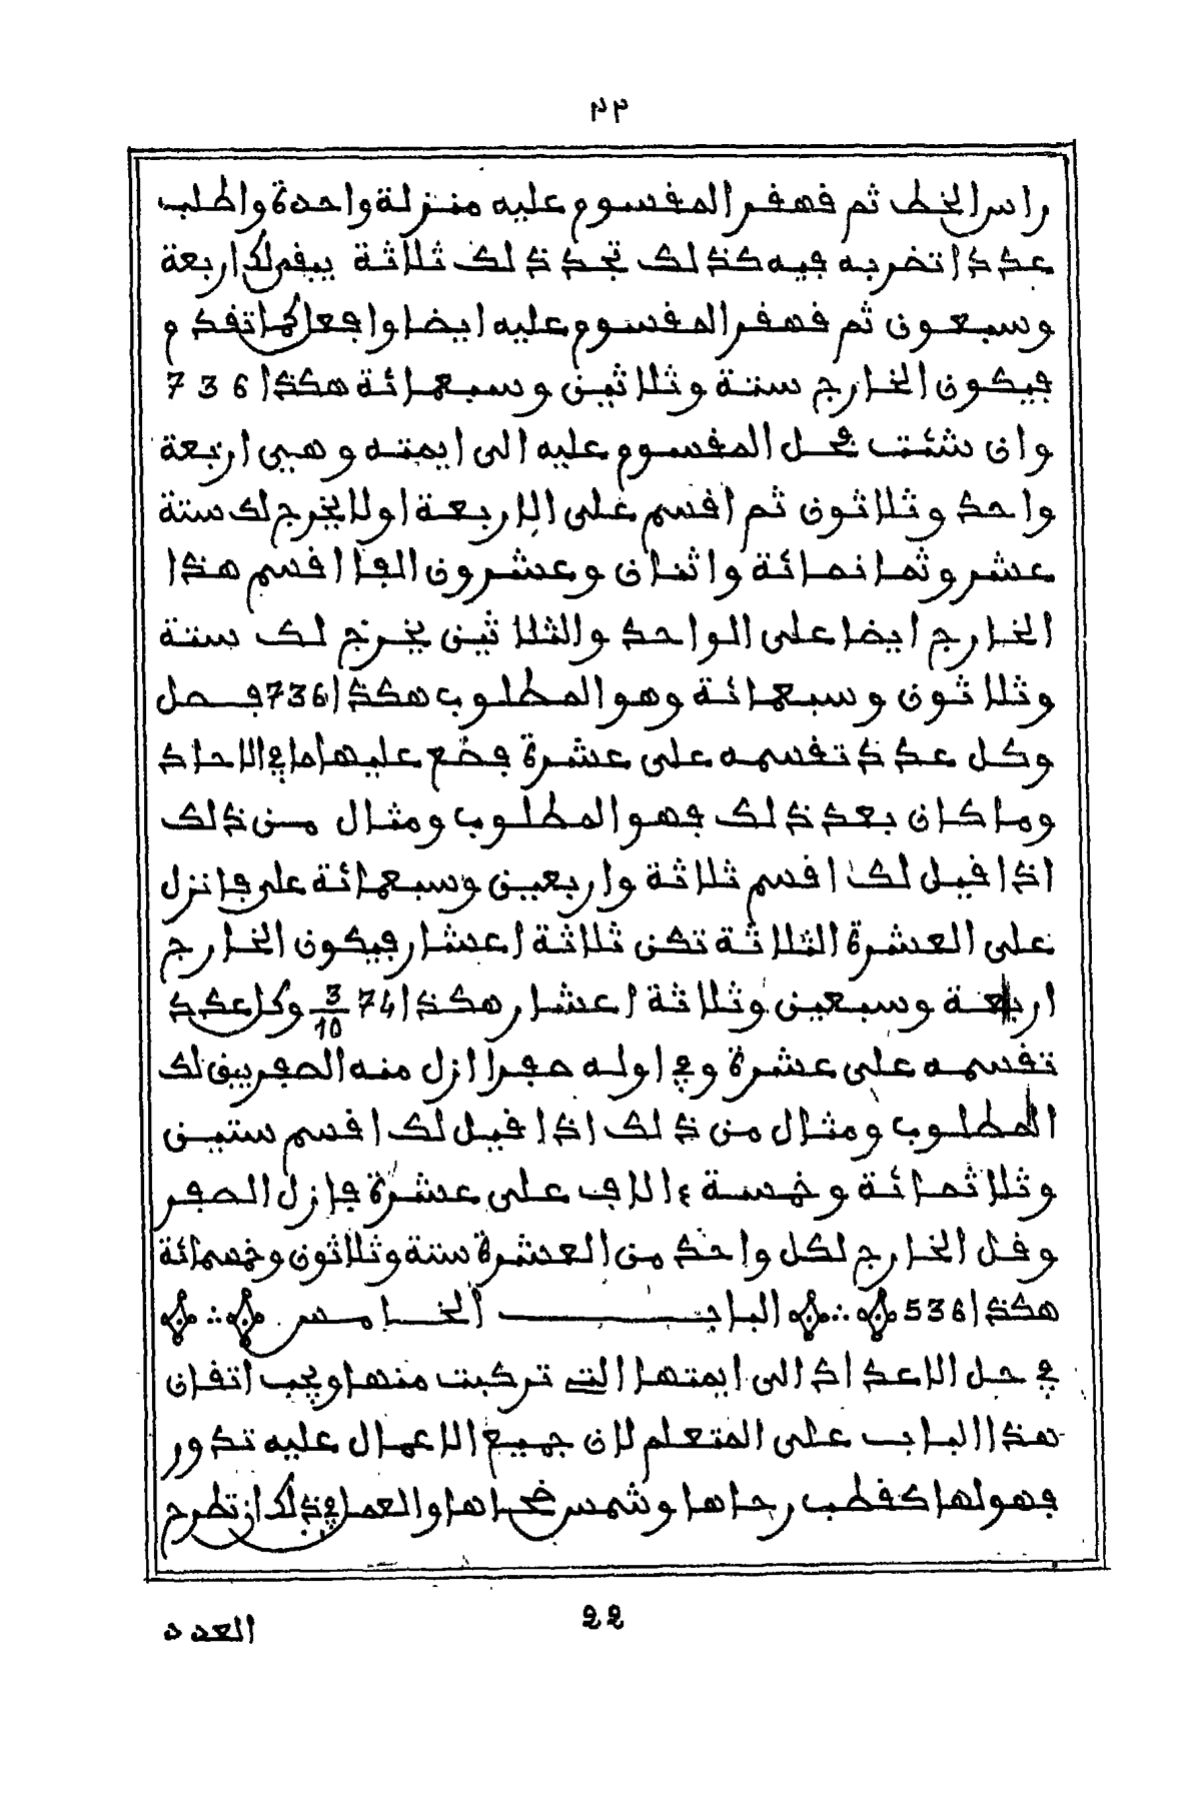 ٢٢
راس الخط ثم فهفر المفسوم عليه منزلة واحدة واطلب
عددا تضربه فيه كذلك تجد ذلك ثلاثة يبقى لك اربعة
وسبعون ثم فهفر المفسوم عليه ايضا وافعل كما تفدم
فيكون الخارج ستة وثلاثين وسبعمائة هكذا 736
وان شئت فحل المفسوم عليه الى ايمته وهي اربعة
واحد وثلاثون ثم افسم على الاربعة اولا يخرج لك ستة
عشر وثمانمائة واثنان وعشرون الفا افسم هذا
الخارج ايضا على الواحد والثلاثين يخرج لك ستة
وثلاثون وسبعمائة وهو المطلوب هكذا 736 فصل
وكل عدد تفسمه على عشرة فضع عليها ما في الاحاد
وما كان بعد ذلك فهو المطلوب ومثال من ذلك
اذا فيل لك افسم ثلاثة واربعين وسبعمائة على فانزل
على العشرة الثلاثة تكن ثلاثة اعشار فيكون الخارج
اربعة وسبعين وثلاثة اعشار هكذا 74 3/10 وكل عدد
تفسمه على عشرة وفي اوله صفر ازل منه الصفر يبق لك
المطلوب ومثال من ذلك اذا فيل لك افسم ستين
وثلاثمائة وخمسة ءالاف على عشرة فازل الصفر
وفل الخارج لكل واحد من العشرة ستة وثلاثون وخمسمائة
هكذا 536 الباب الخامس
في حل الاعداد الى ايمتها التي تركبت منها ويجب اتفان
هذا الباب على المتعلم لان جميع الاعمال عليه تدور
فهو لها كفطب رحاها وشمس ضحاها والعمل في ذلك ان تطرح
22
العدد